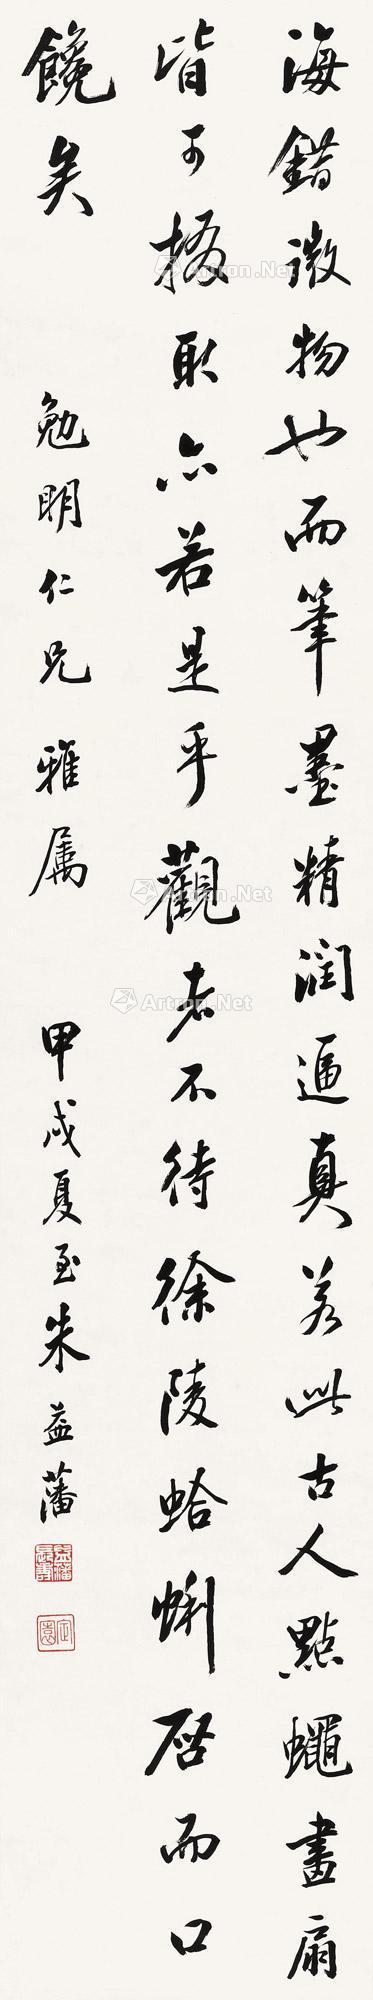 海錯微物也而筆墨精潤逼真若此古人點蠅畫扇
皆可掇取亦若是乎觀者不待徐陵蛤蜊啓而口
饞矣
勉明仁兄雅属
甲戌夏至朱益藩
Artron.Net
Artron.Net
Artron.Net
Artron.Net